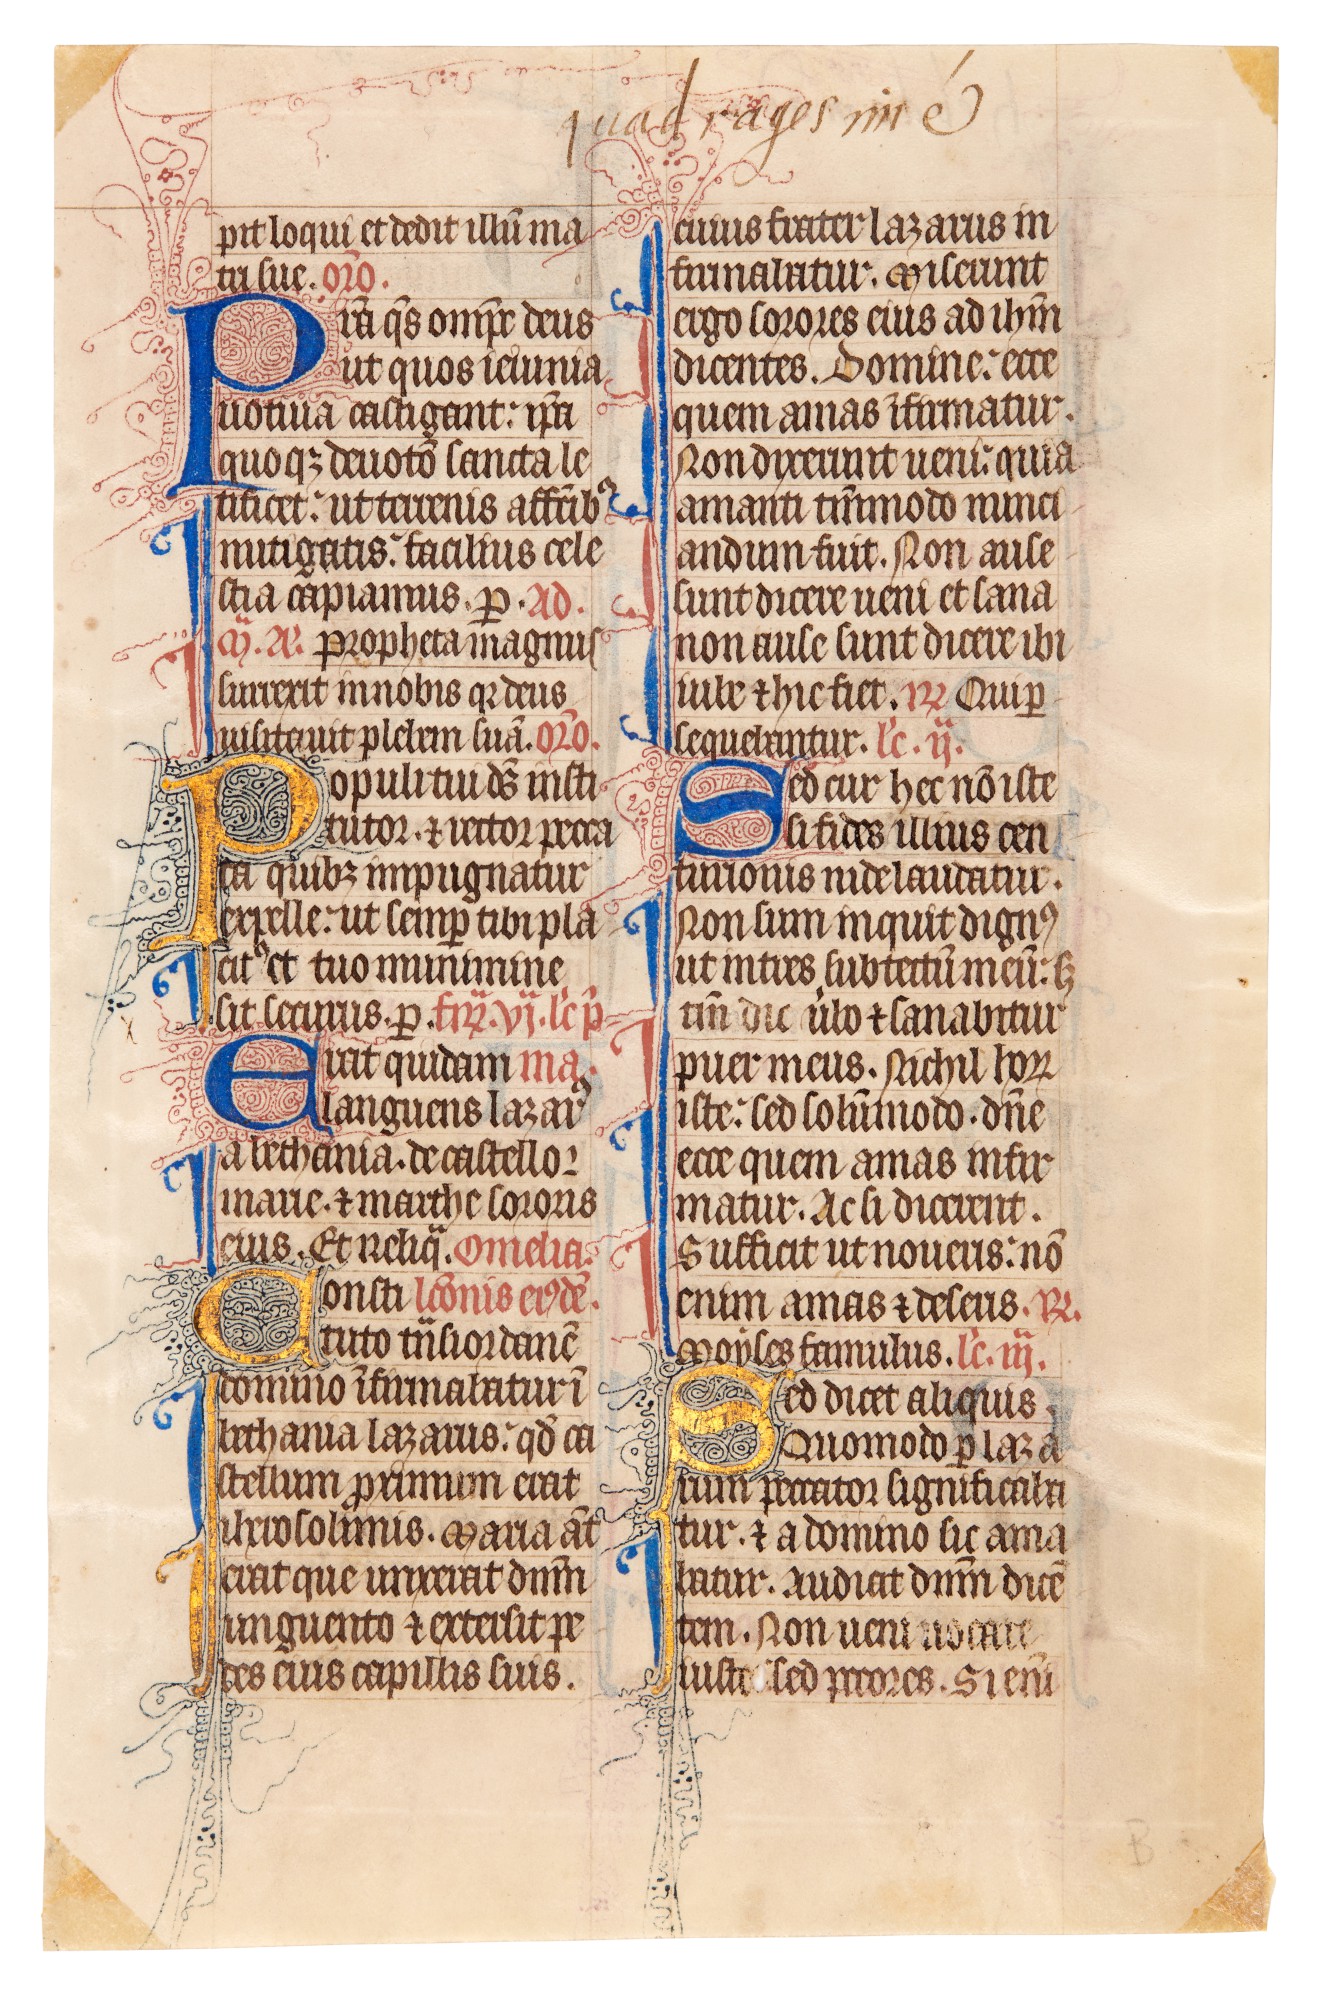 quadragesime
pit loqui et dedit illū ma
tri sue. or̄o.
Pr̄a q̄s omp̄r deus
ut quos ieiunia
uotiua castigant: ip̄a
quoqꝫ deuotō sancta le
tificet: ut terrenis affc̄ibꝰ
mitigatis: facilius cele
stia capiamus. p̱. Ad.
Propheta magnus
surrexit in nobis qꝛ deus
uisitauit plebem suā. or̄o.
Populi tui ds̄ insti
tutor. ⁊ rector pecca
ta quibꝫ impugnatur
expelle: ut semꝑ tibi pla
citꝰ et tuo munimine
sit securus. p̱. fr̄. vj. lc̄ p̄
Erat quidam ma.
languens lazarꝰ
a bethania. de castello
marie. ⁊ marthe sororis
eius. Et reliq̄. Omelia.
Consti lc̄onis eiꝰdē.
tuto trāsiordanē
domino īfirmabatur ī
bethania lazarus: qd̄ ca
stellum proximum erat
iherosolimis. Maria āt
erat que unxerat dnm̄
unguento ⁊ extersit pe
des eius capillis suis.
cuius frater lazarus in
firmabatur. Miserunt
ergo sorores eius ad ihm̄
dicentes. Domine: ecce
quem amas īfirmatur.
Non dixerunt ueni: quia
amanti tm̄modo nunci
andum fuit. Non ause
sunt dicere ueni et sana
non ause sunt dicere ibi
iube ⁊ hic fiet. ℟ Qui ꝑ
sequebantur. lc̄. ij.
Sed cur hec nō iste
si fides illius cen
turionis inde laudatur.
Non sum inquit dignꝰ
ut intres sub tectū meū: sꝫ
tm̄ dic ūbo ⁊ sanabitur
puer meus. Nichil hoꝝ
iste: sed solūmodo. dn̄e
ecce quem amas infir
matur. Ac si dicerent.
Sufficit ut noueris: nō
enim amas ⁊ deseris. ℟.
Moyses famulus. lc̄. iij.
Sed dicet aliquis.
Quomodo ꝑ laza
rum peccator significaba
tur. ⁊ a domino sic ama
batur. Audiat dnm̄ dicē
tem. Non ueni uocare
iustos sed pc̄cores. Si eni